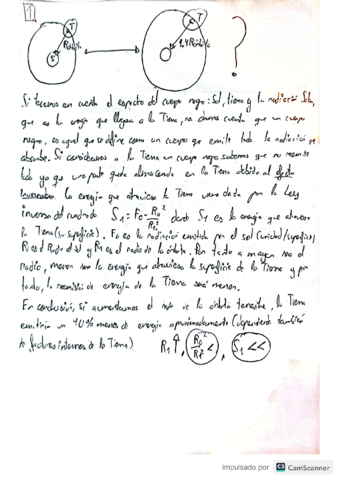 1
T
S
T
1,4 Rórbita
?
Si tenemos en cuenta el espectro del cuerpo negro: Sol, tierra y la radiación Solar,
que es la energía que llega a la Tierra, nos damos cuenta que un cuerpo
negro, es aquel que se define como un cuerpo que emite toda la radiación que
absorbe. Si consideramos a la Tierra un cuerpo negro sabemos que no
todo ya que una parte queda almacenada en la Tierra debido al efecto
invernadero. La energía que atraviesa la Tierra viene dada por la Ley
inversa del cuadrado S1 = F0 · R0² / R1² donde S1 es la energía que atraviesa
la Tierra (su superficie). F0 es la radiación emitida por el sol (unidad/superficie)
R0 es el Radio del sol y R1 es el radio de la órbita. Por tanto a mayor sea el
radio, menor será la energía que atraviesa la superficie de la Tierra y por
tanto, la emisión de energía de la Tierra será menor.
En conclusión, si aumentamos el radio de la órbita terrestre, la Tierra
emitiría un 40% menos de energía aproximadamente (dependiente también
de factores internos de la Tierra) R1 ↑, R0²/R1² <, S1 <<
Impulsado por CS CamScanner